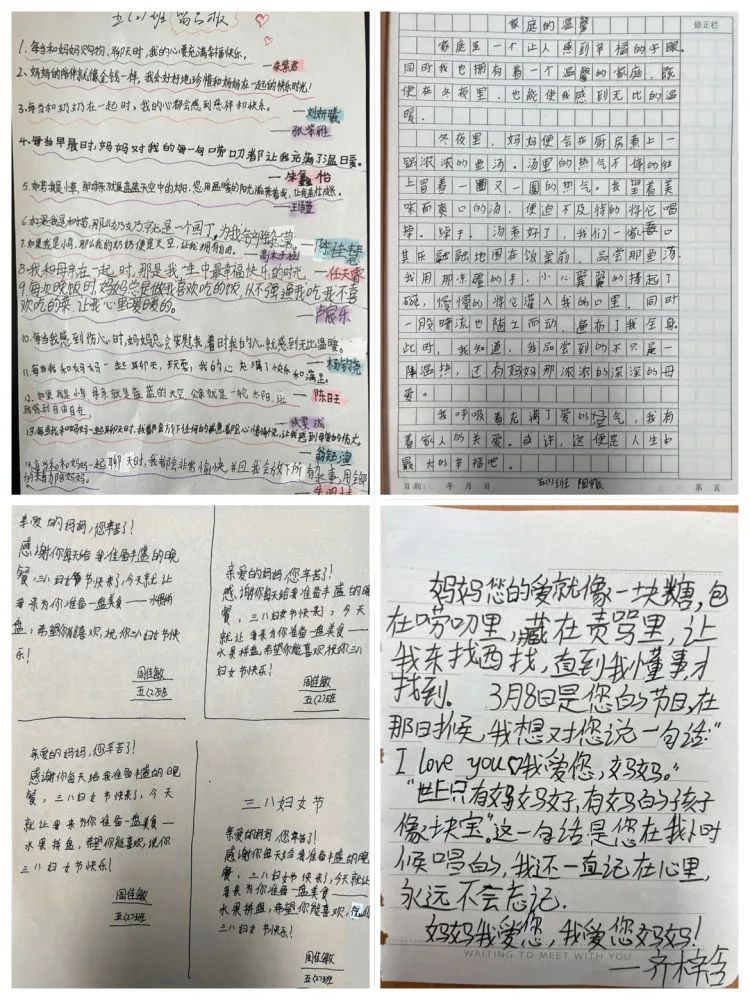 五(2)班 留言板
1.每当和妈妈购物、聊天时,我的心里充满幸福快乐。
2.妈妈的陪伴就像金钱一样,我会好好地珍惜和妈妈在一起的快乐时光!
3.每当和奶奶在一起时,我的心都会感到慈祥和快乐。
——刘妍曦
4.每当早晨时,妈妈对我的每一句唠叨都让我充满了温暖。
7.如果我是小鸟,那么我的奶奶便是天空,让我拥有自由。
8.我和母亲在一起时,那是我一生中最幸福快乐的时光。
——任天睿
9.每次晚饭时妈妈总是做我喜欢吃的饭,从不强迫我吃我不喜
欢吃的菜,让我心里暖暖的。
——卢宸乐
10.每当我感到伤心时,妈妈总会安慰我,着时我的心就感到无比温暖。
11.每当我和妈妈一起聊天,玩耍,我的心充满了快乐和满足。
12.如果我是小鸟 母亲就是蓝蓝的天空 父亲就是一轮太阳,让
我感到自由自在。
——陈旺
家庭的温馨
修正栏
家庭是一个让人感到幸福的字眼。
同时我也拥有着一个温馨的家庭,既
便在冬夜里,也能使我感到无比的温
暖。
冬夜里,妈妈便会在厨房煮上一
锅浓浓的鱼汤。汤里的热气不停的往
上冒着一圈又一圈的热气。我望着美
味而爽口的汤,便迫不及待的将它喝
完。终于,汤煮好了,我们一家
其乐融融地围在饭桌前,品尝那鱼汤
我用那冻僵的手,小心翼翼的捧起了
碗,慢慢的将它灌入我的口里,同时
一股暖流也随之而动,遍布了我全身
此时,我知道,我品尝到的不只是一
阵温热,还有妈妈那浓浓的深深的母
爱。
我呼吸着充满了爱的空气,我有
着家人的关爱。或许,这便是人生中
最大的幸福吧。
日期: 年 月 日
第 页
亲爱的妈妈,您辛苦了!
感谢你每天给我准备丰盛的晚
餐,三八妇女节快来了,今天就让
我来为你准备一盘美食——水果拼
盘,希望你能喜欢,祝你三八妇女节快
乐!
周佳敏
五(2)班
亲爱的妈妈,您辛苦了!
感谢你每天给我准备丰盛的晚
餐,三八妇女节快来了,今天
就让我来为你准备一盘美食——
水果拼盘,希望你能喜欢,祝你三八
妇女节快乐!
周佳敏
五(2)班
亲爱的妈妈,您辛苦了!
感谢你每天给我准备丰盛的晚
餐,三八妇女节快来了,今天
就让我来为你准备一盘美食——
水果拼盘,希望你能喜欢,祝你
三八妇女节快乐!
周佳敏
五(2)班
三八妇女节
亲爱的妈妈,您辛苦了!
感谢你每天给我准备丰盛的晚
餐,三八妇女节快来了,今天就让
我来为你准备一盘美食——
水果拼盘,希望你能喜欢,祝你
三八妇女节快乐!
周佳敏
五(2)班
妈妈您的爱就像一块糖,包
在唠叨里,藏在责骂里,让
我东找西找,直到我懂事才
找到。 3月8日是您的节日,在
那日时候,我想对您说一句话:“
I love you♡我爱您,妈妈。”
“世上只有妈妈好,有妈的孩子
像块宝”。这一句话是您在我小时
候唱的,我还一直记在心里,
永远不会忘记.
妈妈我爱您,我爱您妈妈!
WAITING TO MEET WITH YOU
——齐梓含